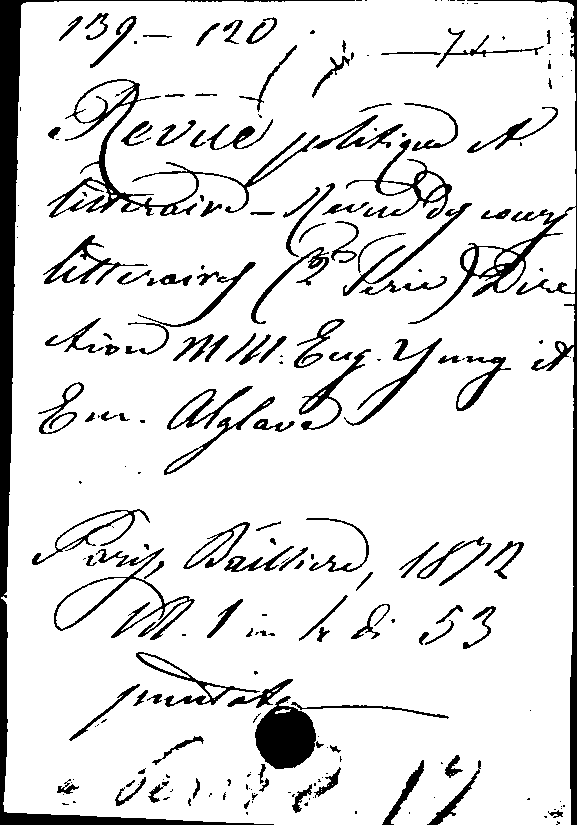 139.- 120
Revue politique et
littéraire - Revue des cours
littéraires (2e Série) Dire
ction MM. Eug. Yung et
Em. Alglave
Paris, Baillière, 1872
Vol. 1 in 4 di 53
puntate
17